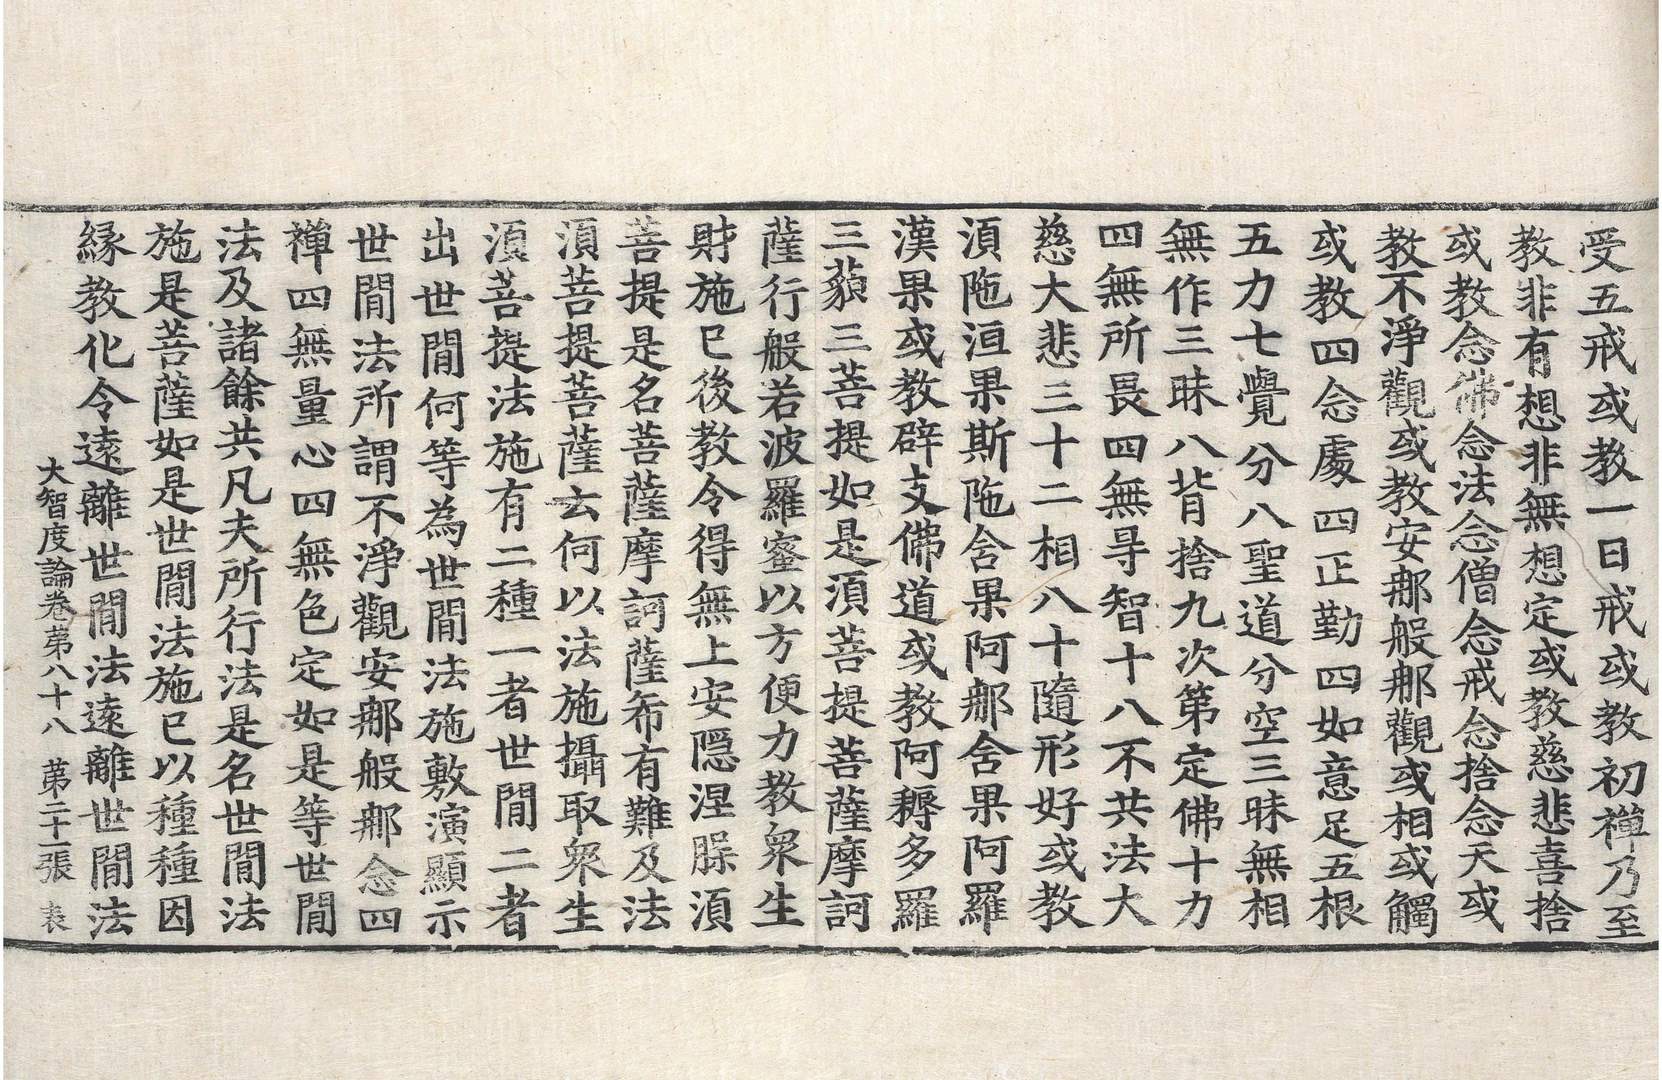 受五戒或教一日戒或教初禪乃至
教非有想非無想定或教慈悲喜捨
或教念佛念法念僧念戒念捨念天或
教不淨觀或教安那般那觀或相或觸
或教四念處四正勤四如意足五根
五力七覺分八聖道分空三昧無相
無作三昧八背捨九次第定佛十力
四無所畏四無㝵智十八不共法大
慈大悲三十二相八十隨形好或教
湏陁洹果斯陁含果阿那含果阿羅
漢果或教辟支佛道或教阿耨多羅
三藐三菩提如是湏菩提菩薩摩訶
薩行般若波羅蜜以方便力教衆生
財施已後教令得無上安隱涅槃湏
菩提是名菩薩摩訶薩希有難及法
湏菩提菩薩云何以法施攝取衆生
湏菩提法施有二種一者世間二者
出世間何等為世間法施敷演顯示
世間法所謂不淨觀安那般那念四
禪四無量心四無色定如是等世間
法及諸餘共凡夫所行法是名世間法
施是菩薩如是世間法施已以種種因
緣教化令遠離世間法遠離世間法
大智度論卷第八十八 第二十一張 表